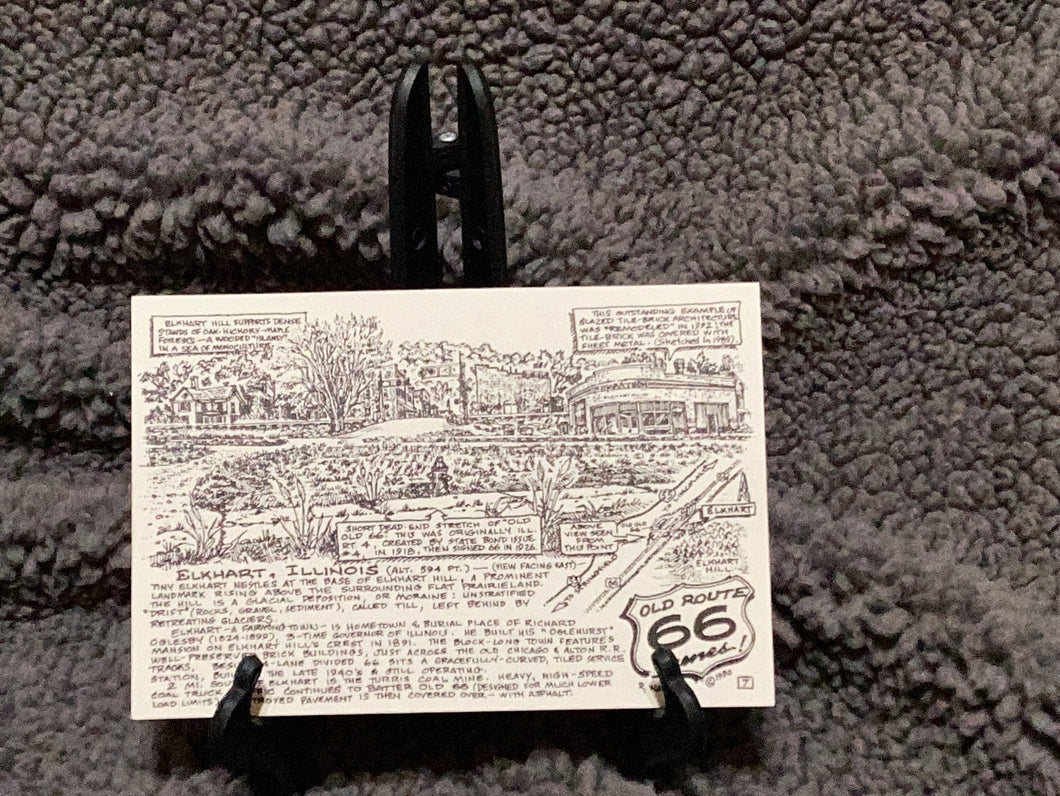 ELKHART HILL SUPPORTS DENSE
STANDS OF OAK-HICKORY-MAPLE
FORESTS—A WOODED "ISLAND"
IN A SEA OF MONOCULTURE.
THIS OUTSTANDING EXAMPLE OF
GLAZED TILE-BRICK ARCHITECTURE
WAS "REMODELED" IN 1982; THE
TILE-BRICK WAS COVERED WITH
SHEET METAL. (Sketched in 1981)
SHORT DEAD-END STRETCH OF "OLD
OLD 66". THIS WAS ORIGINALLY ILL.
RT. 4. CREATED BY STATE BOND ISSUE
IN 1918, THEN SIGNED 66 IN 1926
ABOVE
VIEW SEEN
FROM
THIS POINT
ELKHART
ELKHART
HILL
TO SPRINGFIELD
ELKHART, ILLINOIS (ALT. 594 FT.) — (VIEW FACING EAST) —
TINY ELKHART NESTLES AT THE BASE OF ELKHART HILL, A PROMINENT
LANDMARK RISING ABOVE THE SURROUNDING FLAT PRAIRIELAND.
THE HILL IS A GLACIAL DEPOSITION, OR MORAINE: UNSTRATIFIED
"DRIFT" (ROCKS, GRAVEL, SEDIMENT), CALLED TILL, LEFT BEHIND BY
RETREATING GLACIERS.
ELKHART—A FARMING TOWN—IS HOMETOWN & BURIAL PLACE OF RICHARD
OGLESBY (1824-1899), 3-TIME GOVERNOR OF ILLINOIS. HE BUILT HIS "OGLEHURST"
MANSION ON ELKHART HILL'S CREST IN 1891. THE BLOCK-LONG TOWN FEATURES
WELL-PRESERVED BRICK BUILDINGS, JUST ACROSS THE OLD CHICAGO & ALTON R.R.
TRACKS. -LANE DIVIDED 66 SITS A GRACEFULLY-CURVED, TILED SERVICE
STATION, THE LATE 1940'S & STILL OPERATING.
2 MI. ELKHART IS THE TURRIS COAL MINE. HEAVY, HIGH-SPEED
COAL TRUCK CONTINUES TO BATTER OLD 66 (DESIGNED FOR MUCH LOWER
LOAD LIMITS). PAVEMENT IS THEN COVERED OVER—WITH ASPHALT.
OLD ROUTE
66
©1990
7